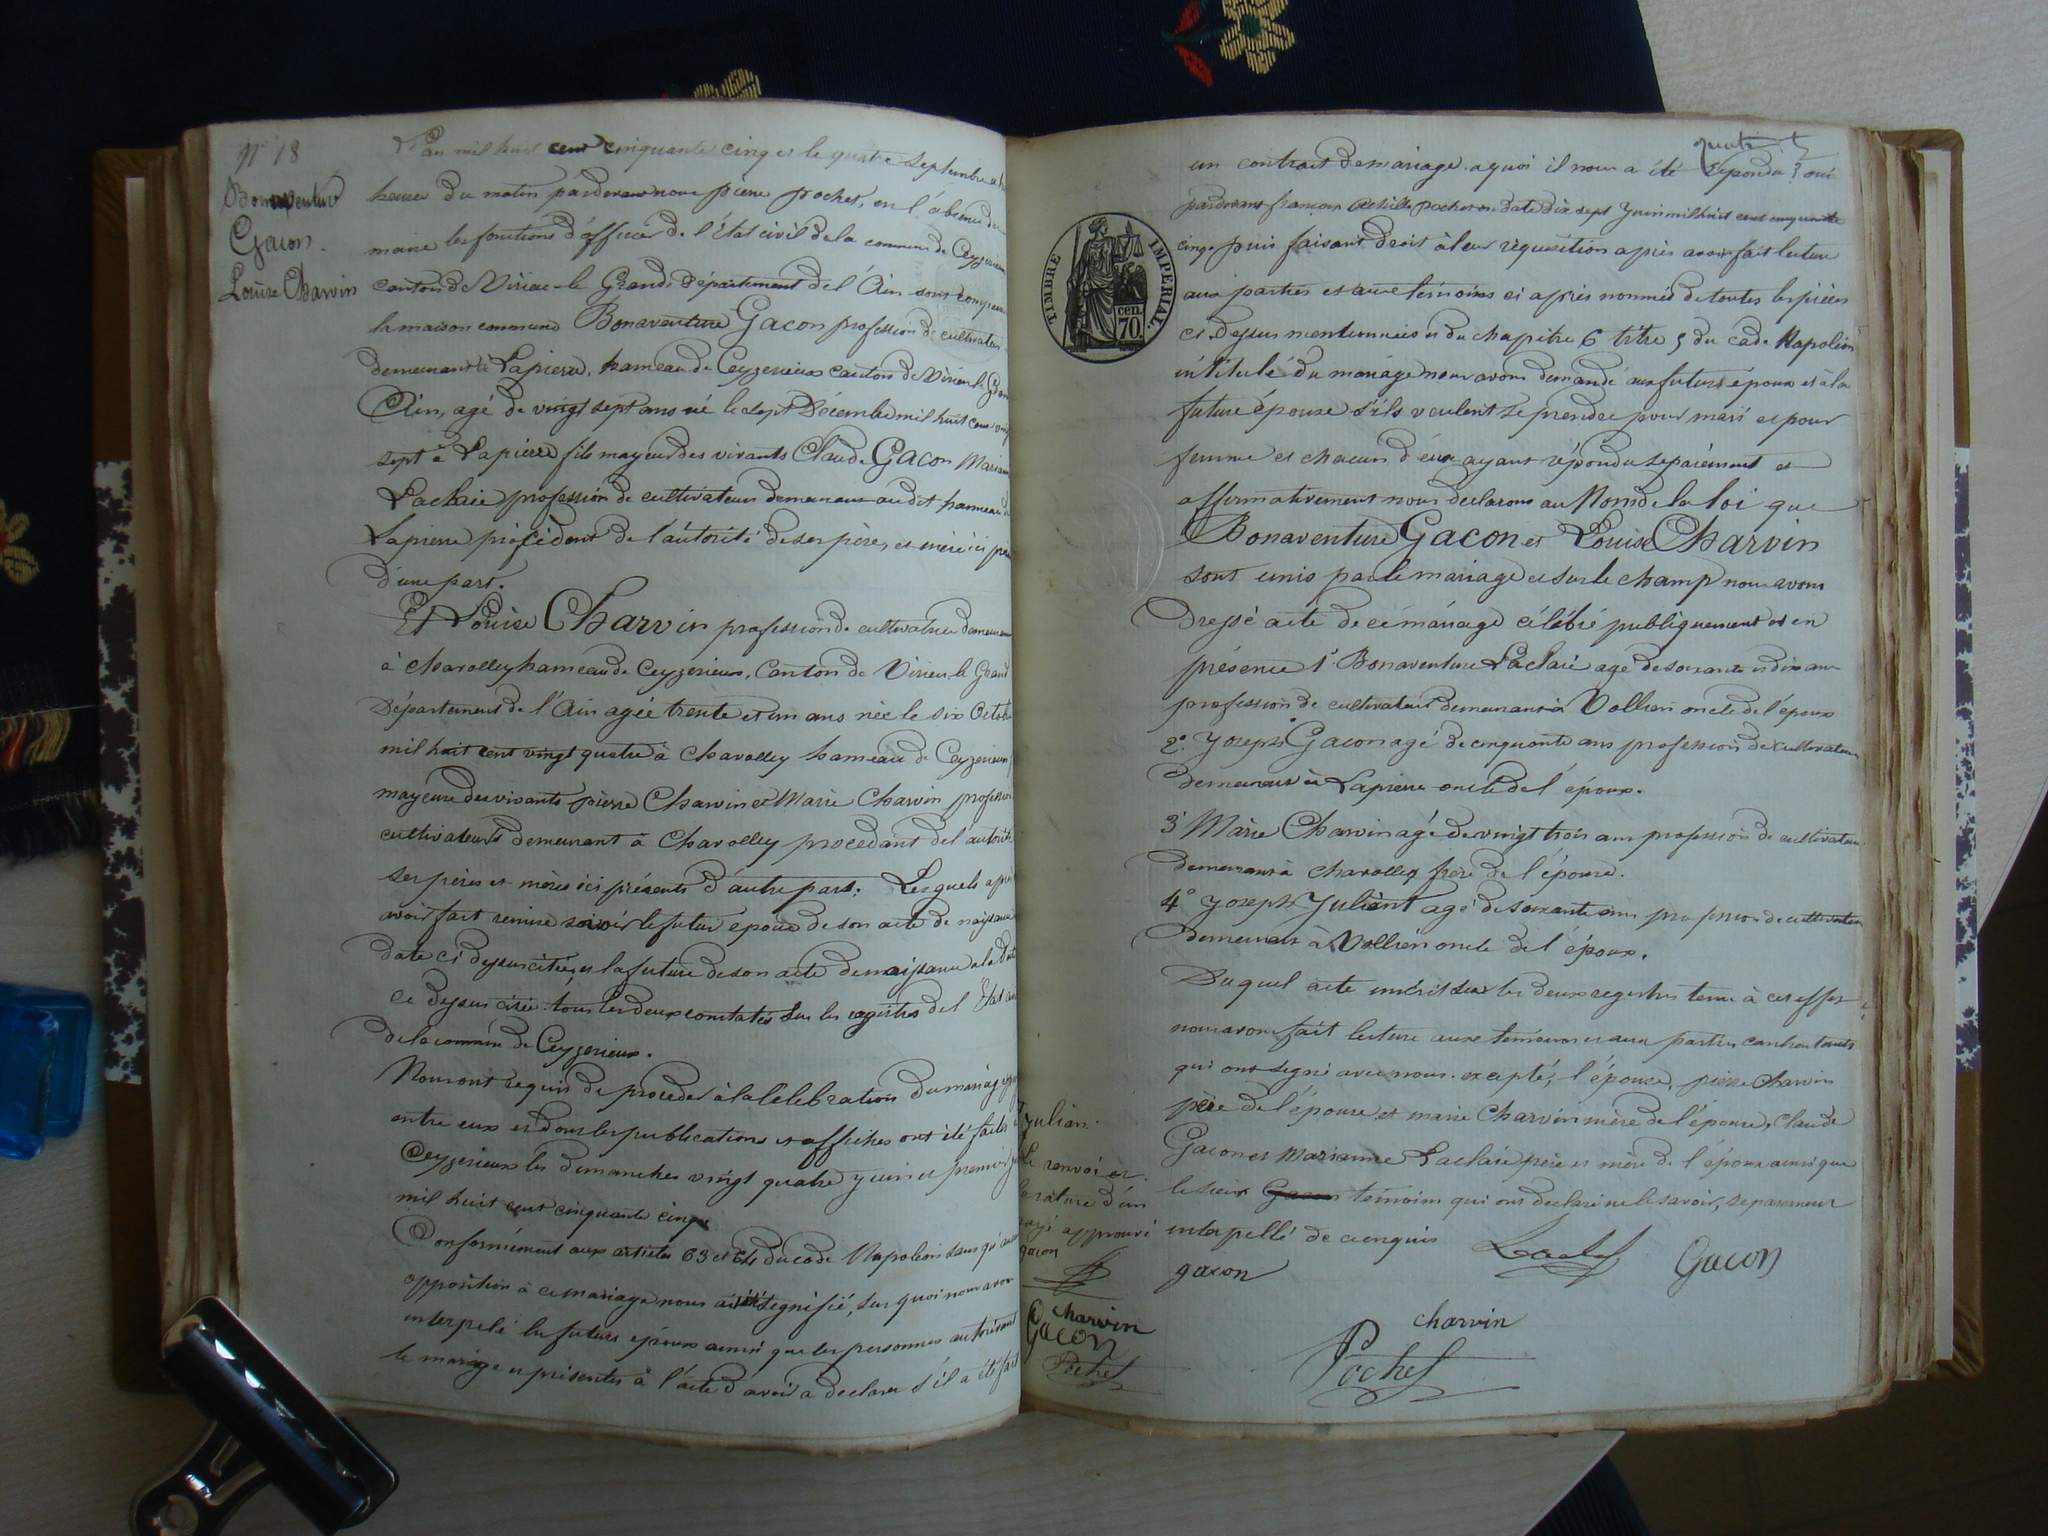 N° 18
Bonaventure
Gacon
Louise Charvin
L'an mil huit cent cinquante cinq et le quatre Septembre
heures du matin pardevant nous pierre pochet, en l'absence du
maire les fonctions d'officier de l'état civil de la commune de Ceyzerieux
canton de Virieu le Grand Département de l'Ain sont comparus
la maison commune Bonaventure Gacon profession de cultivateur
demeurant à Lapierre, hameau de Ceyzerieux canton de Virieu le Grand
Ain, agé de vingt sept ans né le sept Décembre mil huit cent vingt
sept à Lapierre fils mayeur des vivants Claude Gacon Marianne
Laclaie profession de cultivateurs demeurant au dit hameau de
Lapierre procédant de l'autorité de ses père, et mère ici
d'une part.
Et Louise Charvin profession de cultivatrice demeurant
à Charolley hameau de Ceyzerieux, Canton de Virieu le Grand
Département de l'Ain agée trente et un ans née le six Octobre
mil huit cent vingt quatre à Charolley hameau de Ceyzerieux
mayeure des vivants pierre Charvin et Marie Charvin profession
cultivateurs demeurant à Charolley procedant de l'autorité
ses pères et mères ici présents d'autre part. Lesquels après
avoir fait remise savoir le futur époux de son acte de naissance
date ci dessus citée, et la future de son acte de naissance a la date
ce dessus citée tous les deux constatés sur les registres de l'Etat civil
de la commune de Ceyzerieux.
Nous ont requis de procéder à la célébration du mariage
entre eux et dont les publications et affiches ont été faites
Ceyzerieux les dimanches vingt quatre yuin et premier
mil huit cent cinquante cinq
Conformément aux articles 63 et 64 du code Napoléon sans qu'aucune
opposition à ce mariage nous ait été segnifié, sur quoi nous avons
interpelé les futurs époux ainsi que les personnes autorisant
le mariage et présentes à l'acte d'avoir a declarer s'il a été fait
un contrat de mariage. a quoi il nous a été répondu oui
pardevant françois pochet en date dix sept Yuin mil huit cent cinquante
cinq. puis faisant droit à leur réquisition après avoir fait lecture
aux parties et aux témoins ci après nommés de toutes les pièces
ci dessus mentionnées et du chapitre 6 titre 5 du code Napoléon
intitulé du mariage nous avons demandé au futur époux et à la
future épouse s'ils veulent se prendre pour mari et pour
femme et chacun d'eux ayant répondu separément et
affirmativement nous déclarons au Nom de la loi que
Bonaventure Gacon et Louise Charvin
sont unis par le mariage et sur le champ nous avons
dressé acte de ce mariage célébré publiquement et en
présence 1° Bonaventure Laclaie agé de soixante et dix ans
profession de cultivateur demeurant à Vollien oncle de l'époux
2° Yoseph Gacon agé de cinquante ans profession de cultivateur
demeurant à Lapierre oncle de l'époux.
3° Marie Charvin agé de vingt trois ans profession de cultivateur
demeurant à Charolley frère de l'épouse.
4° Yoseph Yulient agé de soixante ans profession de cultivateur
demeurant à Vollien oncle de l'époux.
Duquel acte inscrit sur les deux registres tenu à cet effet
nous avons fait lecture aux témoins et aux parties
qui ont signé avec nous. excepté, l'épouse, pierre Charvin
père de l'épouse et marie Charvin mère de l'épouse, Claude
Gacon et Marianne Laclaie père et mère de l'époux ainsi que
le sieur Gacon témoins qui ont declaré ne le savoir, separément
interpellé de ce enquis
TIMBRE IMPERIAL.
cen.
70.
Yulien
le renvoi et
la rature d'un
rayé approuvé
gacon
charvin
Gacon
Pochet
gacon
Gacon
charvin
Pochet